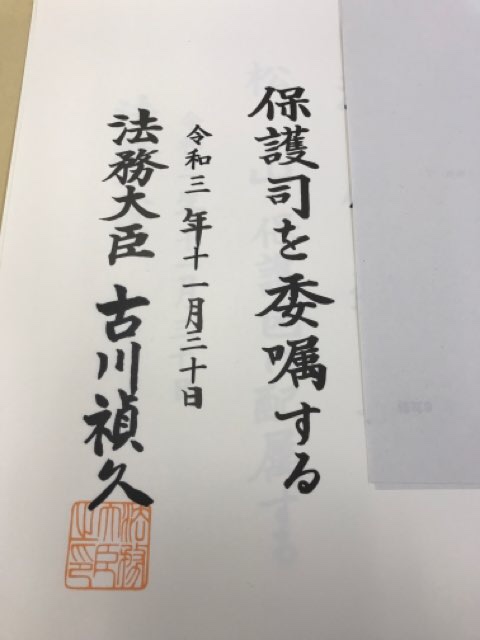 保護司を委嘱する
令和三年十一月三十日
法務大臣 古川禎久
法務大臣之印